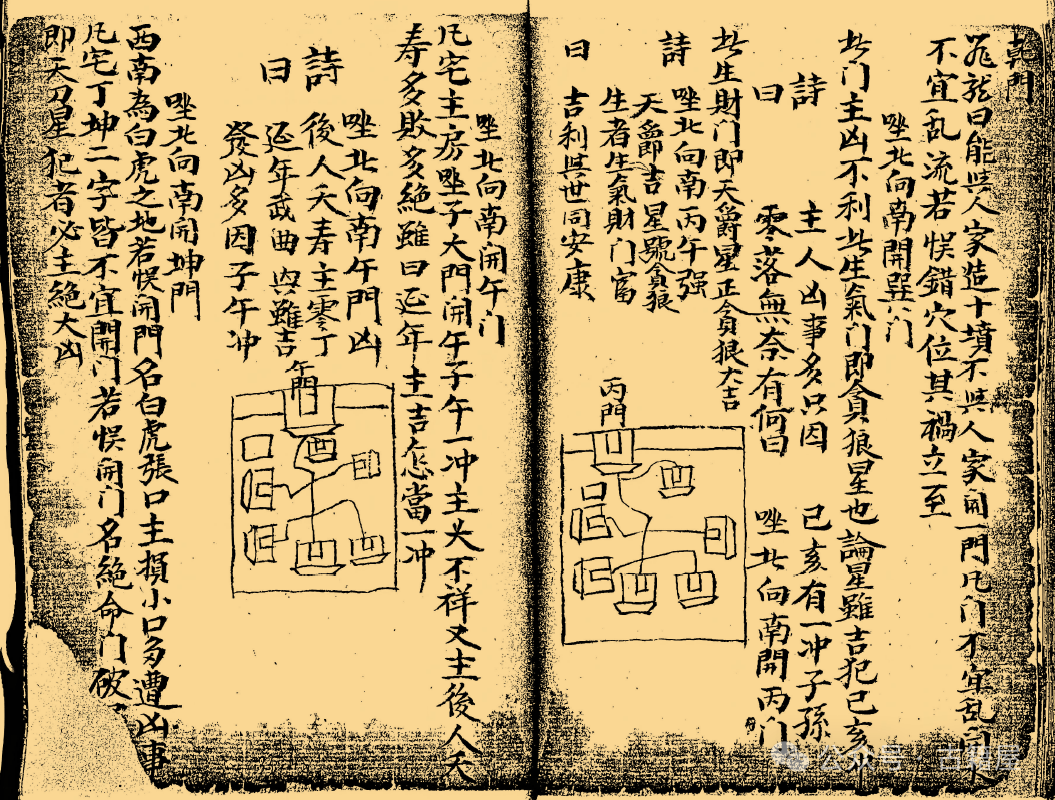 乾門
尨龍曰能與人家造十墳不與人家開一門凡门不宜乱開水
不宜乱流若悮錯穴位其禍立至
唑北向南開巽门
此门主凶不利此生氣门即貪狼星也論星雖吉犯己亥冲
詩曰
主人凶事多只因
己亥有一冲子孫
零落無奈有何曰
唑北向南開丙门
此生財门即天爵星正貪狠大吉
詩曰
唑北向南丙午强
天爵即吉星號貪狼
生者生氣財门富
吉利與世同安康
丙門
唑北向南開午门
凡宅主房唑子大門開午子午一冲主火不祥又主後人夭
寿多敗多絕雖曰延年主吉怎當一冲
詩曰
唑北向南午門凶
後人夭寿主零丁
延年武曲與雖吉
發凶多因子午冲
午門
唑北向南開坤門
西南為白虎之地若悮開門名白虎張口主損小口多遭凶事
凡宅丁坤二字皆不宜開门若悮開门名絕命门破
即天刀星犯者必主絕大凶
公众号·古籍屋